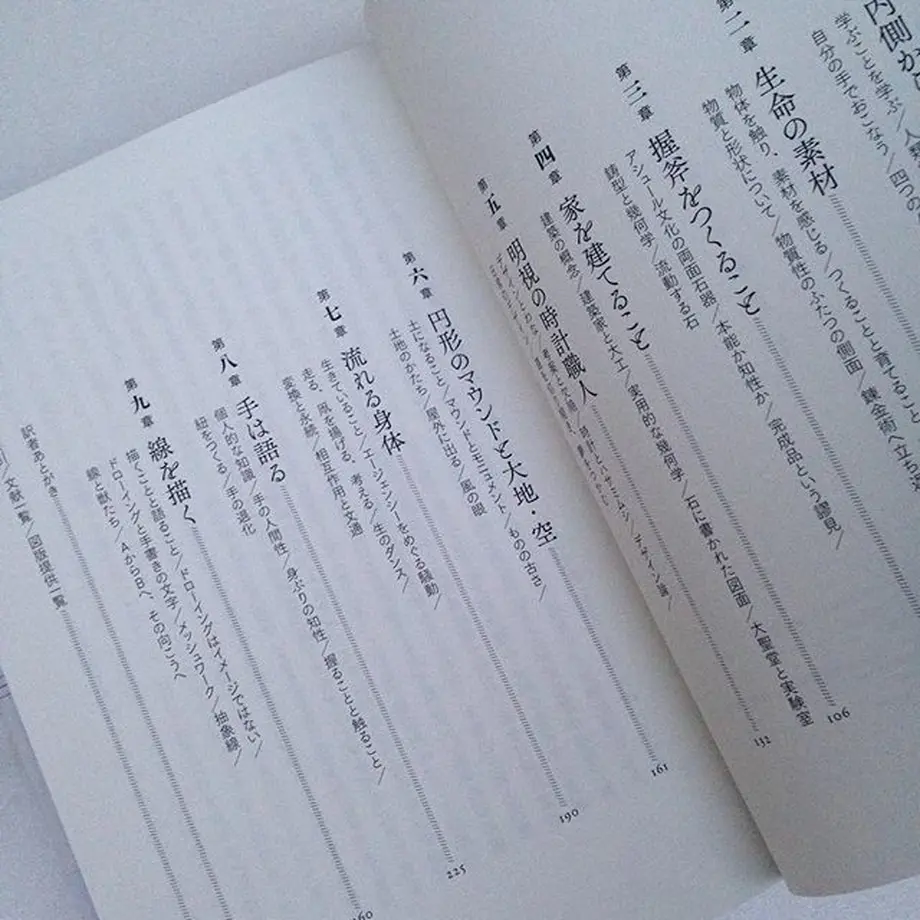 内側か
学ぶことを学ぶ／人類
自分の手でおこなう／四つの
第二章 生命の素材
物体を触り、素材を感じる／つくることと育てること／
物質と形状について／物質性のふたつの側面／錬金術へ立ち
第三章 握斧をつくること
アシュール文化の両面石器／本能か知性か／完成品という謬見／
鋳型と幾何学／流動する石
第四章 家を建てること 106
建築の概念／建築家と大工／実用的な幾何学／石に書かれた図面／大聖堂と実験室
第五章 明視の時計職人 132
デザインとわな／
デザイン論／
第六章 円形のマウンドと大地・空 161
土になること／マウンドとモニュメント／ものの古さ／
土地のかたち／屋外に出る／風の眼
第七章 流れる身体 190
生きていること／エージェンシーをめぐる騒動／
走る、凧を揚げる、考える／生のダンス／
変換と永続／相互作用と文通
第八章 手は語る 225
個人的な知識／手の人間性／身ぶりの知性／握ることと触ること／
紐をつくる／手の退化
第九章 線を描く 260
描くことと語ること／ドローイングはイメージではない／
ドローイングと手書きの文字／メッシュワーク／抽象線／
線と獣たち／AからBへ、その向こうへ
訳者あとがき
／文献一覧／図版提供一覧